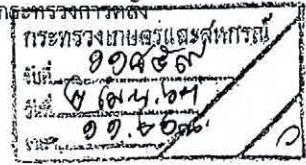 กระทรวงการคลัง
กระทรวงเกษตรและสหกรณ์
รับที่ ๑๑๔๕๗
วันที่ ๒ เม.ย. ๖๗
เวลา